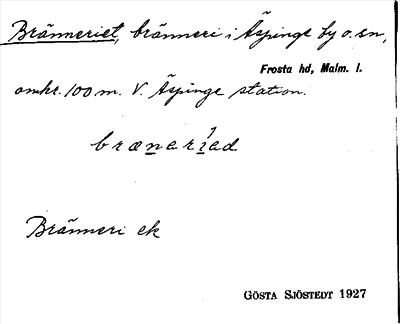 Bränneriet, bränneri i Äspinge by o. sn,
Frosta hd, Malm. l.
omkr. 100 m. V. Äspinge station.
bræneríad
Bränneri ek
GÖSTA SJÖSTEDT 1927